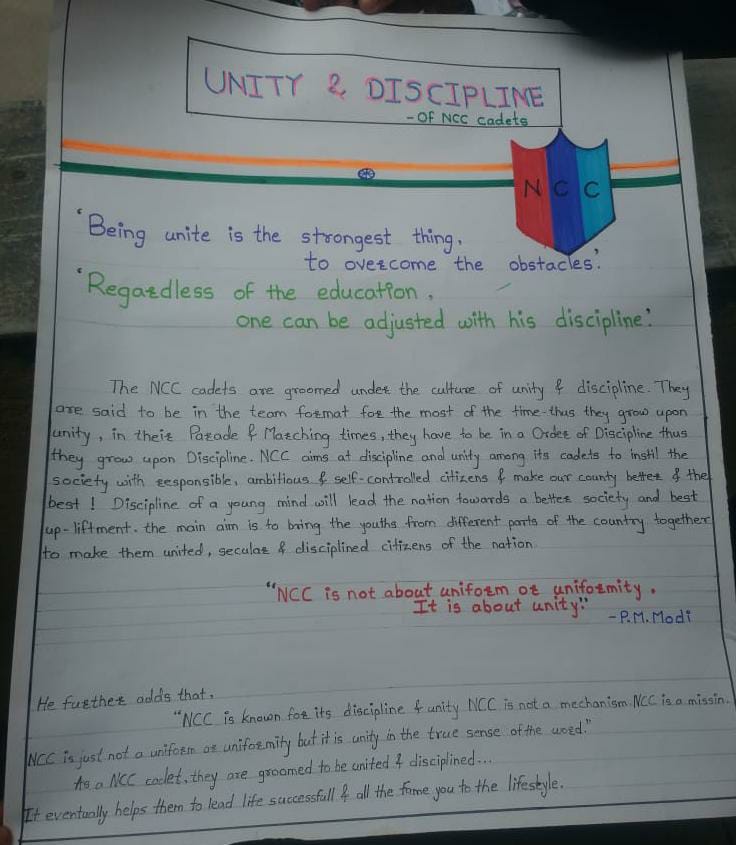 UNITY & DISCIPLINE
- OF NCC cadets
N C C
'Being unite is the strongest thing,
to overcome the obstacles'.
'Regardless of the education,
one can be adjusted with his discipline.'
The NCC cadets are groomed under the culture of unity & discipline. They
are said to be in the team format for the most of the time-thus they grow upon
unity, in their Parade & Marching times, they have to be in a Order of Discipline thus
they grow upon Discipline. NCC aims at discipline and unity among its cadets to instil the
society with responsible, ambitious & self-controlled citizens & make our county better & the
best! Discipline of a young mind will lead the nation towards a better society and best
up-liftment. the main aim is to bring the youths from different parts of the country together
to make them united, secular & disciplined citizens of the nation.
"NCC is not about uniform or uniformity.
It is about unity."
- P.M. Modi
He further adds that,
"NCC is known for its discipline & unity NCC is not a mechanism. NCC is a missin.
NCC is just not a uniform or uniformity but it is unity in the true sense of the word."
As a NCC cadet, they are groomed to be united & disciplined...
It eventually helps them to lead life successfull & all the fame you to the lifestyle.